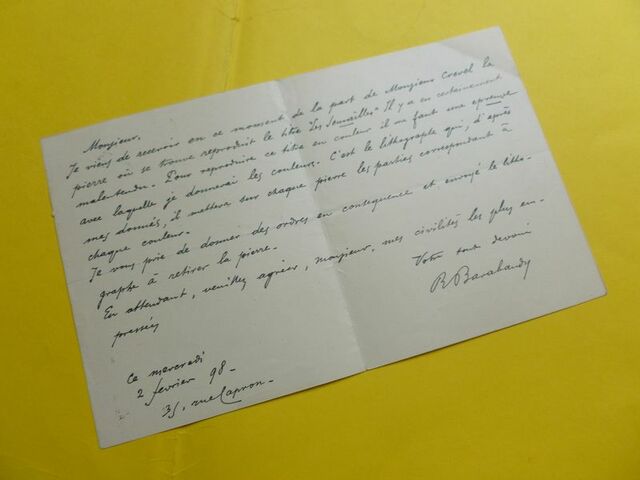 Monsieur,
Je viens de recevoir en ce moment de la part de Monsieur Crevel la
pierre où se trouve reproduit le titre "Les Semailles". Il y a eu certainement
malentendu. Pour reproduire ce titre en couleur il me faut une épreuve
avec laquelle je donnerai les couleurs. C'est le lithographe qui, d'après
mes donnés, il mettera sur chaque pierre les parties correspondant à
chaque couleur.
Je vous prie de donner des ordres en conséquence et envoyé le litho-
graphe à retirer la pierre.
En attendant, veuillez agréer, monsieur, mes civilités les plus em-
pressées
Votre tout devoué
R Barabandy
Ce mercredi
2 fevrier 98 -
35, rue Capron -